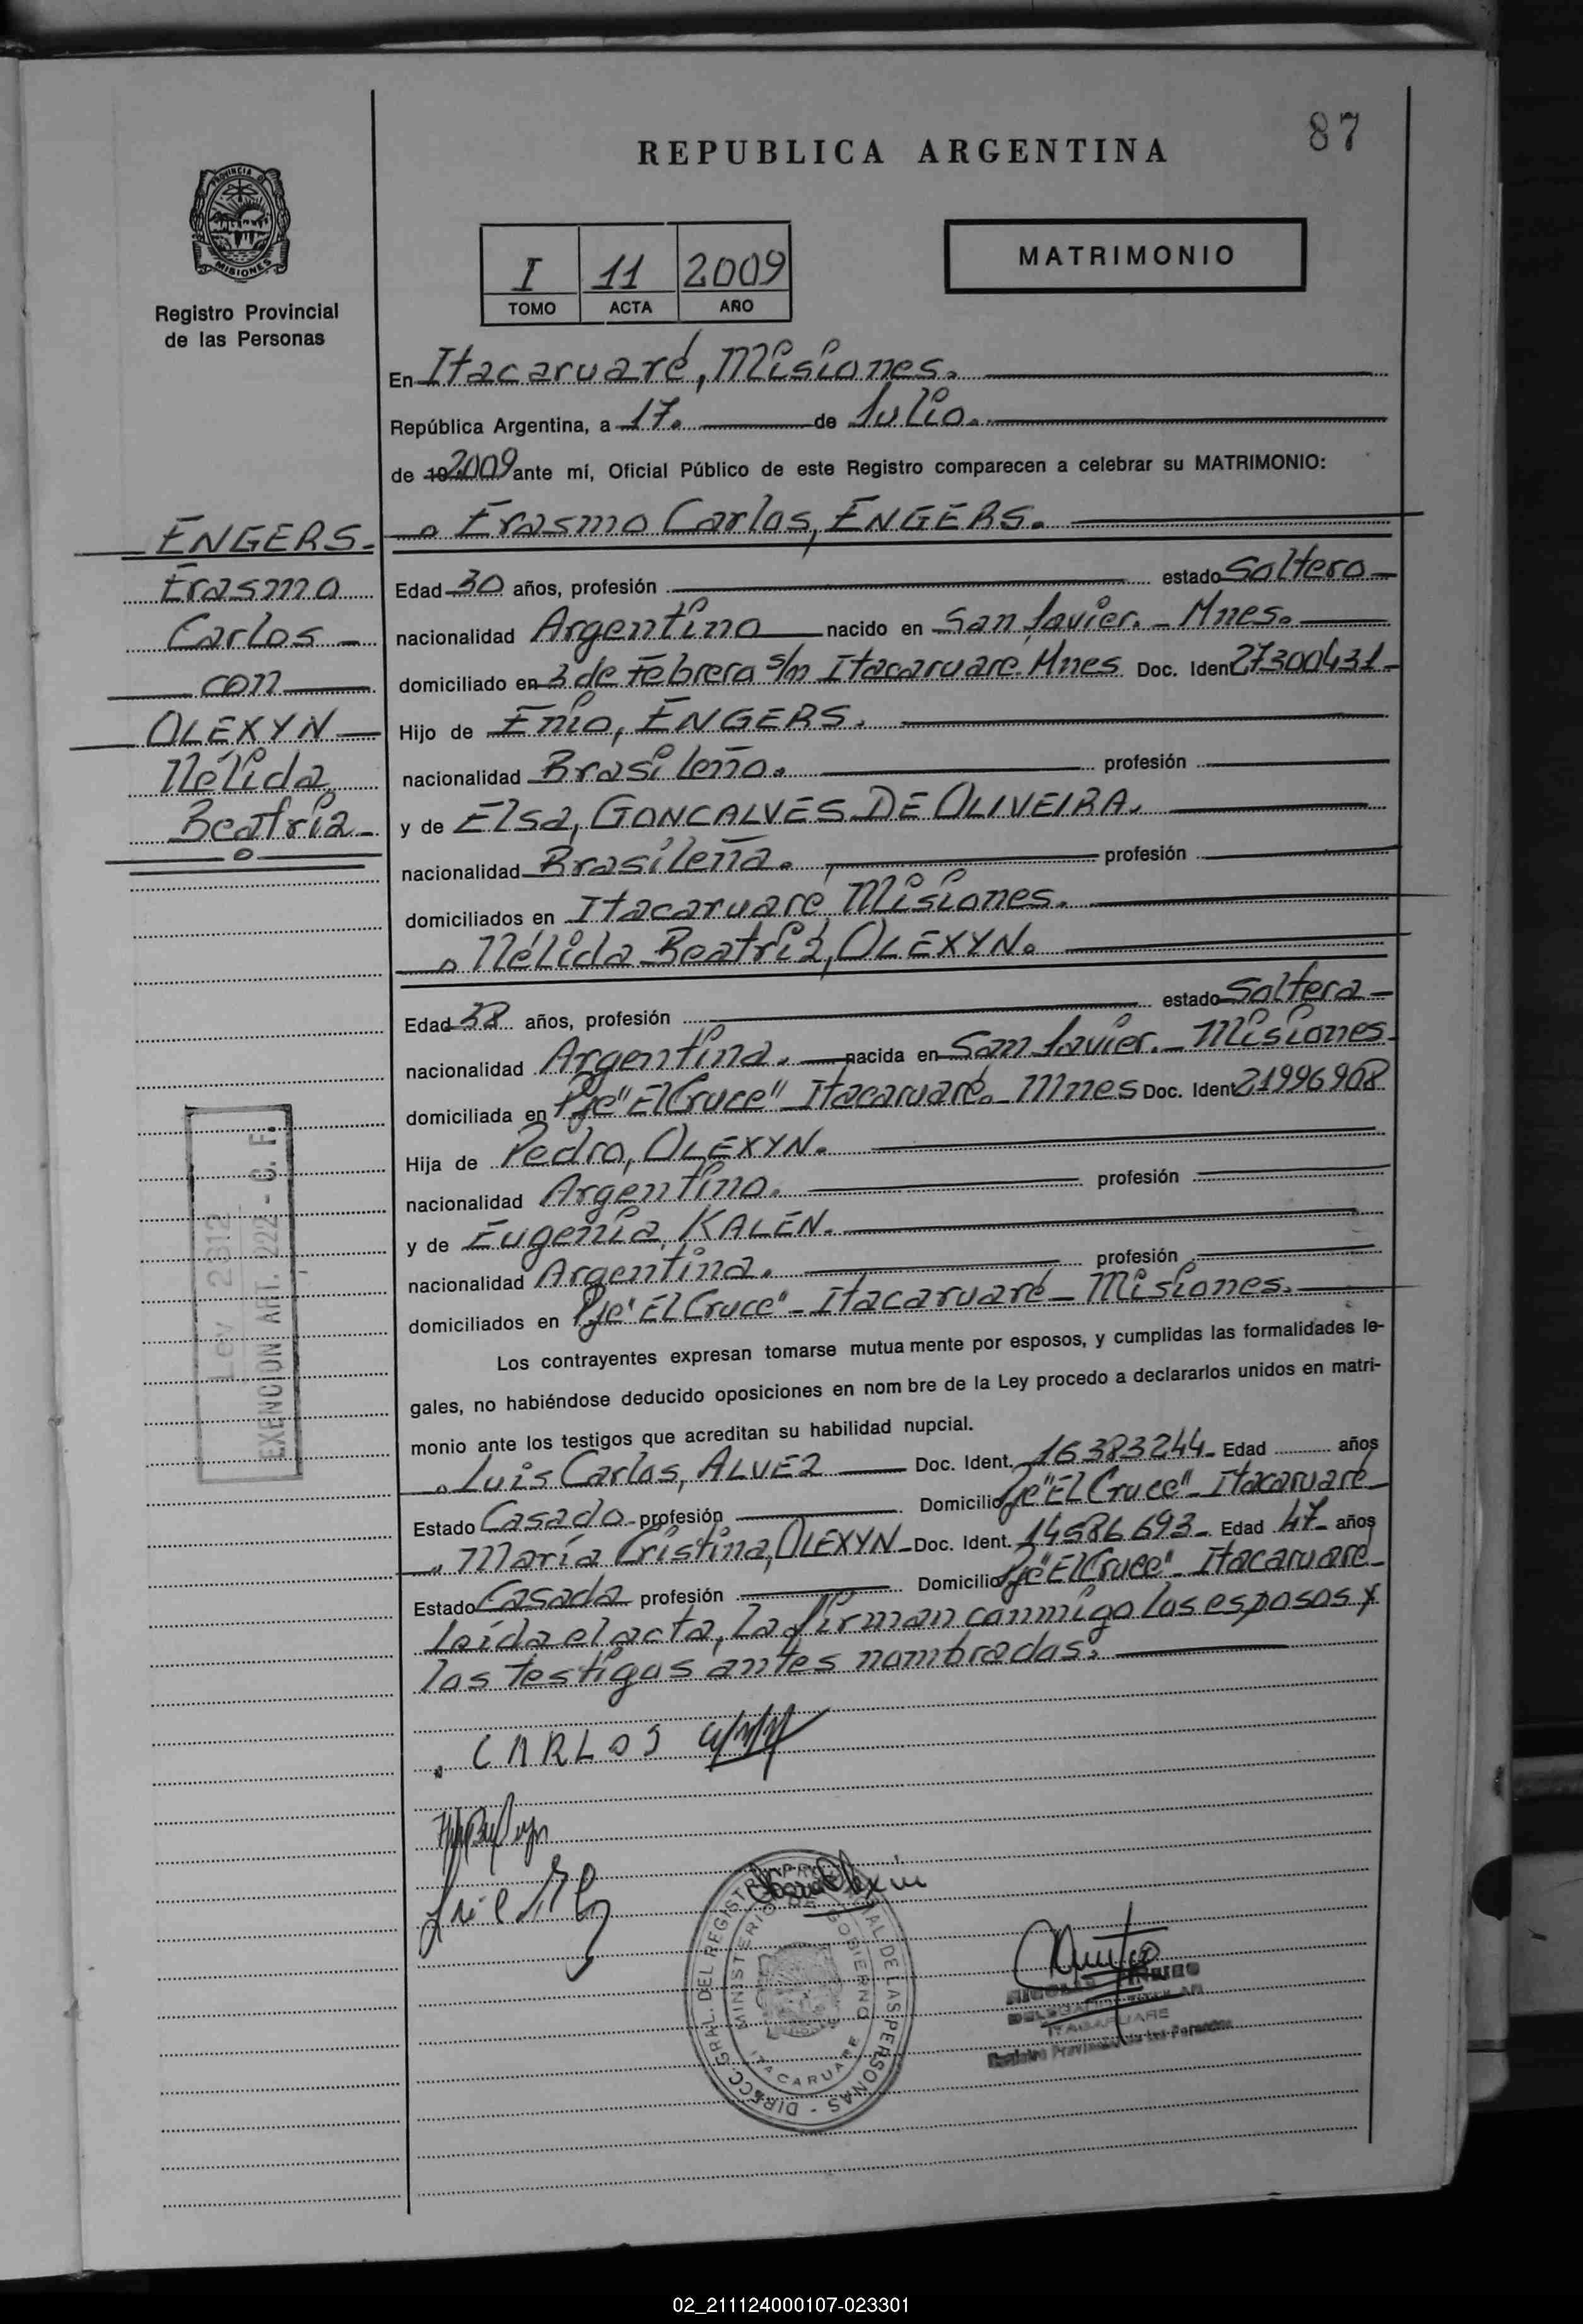 87
REPUBLICA ARGENTINA
PROVINCIA D
MISIONES
Registro Provincial
de las Personas
I 11 2009
TOMO ACTA AÑO
MATRIMONIO
En Itacaruaré, Misiones.
República Argentina, a 17. de Julio.
de 19 2009 ante mí, Oficial Público de este Registro comparecen a celebrar su MATRIMONIO:
Erasmo Carlos, ENGERS.
Edad 30 años, profesión estado Soltero
nacionalidad Argentino nacido en San Javier. - Mnes.
domiciliado en 3 de Febrero s/n Itacaruare. Mnes Doc. Iden 27300431
Hijo de Enio, ENGERS.
nacionalidad Brasileño. profesión
y de Elsa, GONCALVES DE OLIVEIRA.
nacionalidad Brasileña. profesión
domiciliados en Itacaruaré Misiones.
Nélida Beatriz, OLEXYN.
Edad 38 años, profesión estado Soltera
nacionalidad Argentina. nacida en San Javier. - Misiones
domiciliada en Pje "El Cruce" Itacaruaré. Mnes Doc. Ident 21996908
Hija de Pedro, OLEXYN.
nacionalidad Argentino. profesión
y de Eugenia, KALEN.
nacionalidad Argentina. profesión
domiciliados en Pje "El Cruce" - Itacaruaré - Misiones.
Los contrayentes expresan tomarse mutua mente por esposos, y cumplidas las formalidades le-
gales, no habiéndose deducido oposiciones en nom bre de la Ley procedo a declararlos unidos en matri-
monio ante los testigos que acreditan su habilidad nupcial.
Luis Carlos, ALVEZ Doc. Ident. 16383244 Edad años
Estado Casado profesión Domicilio Pje "El Cruce" - Itacaruaré
María Cristina, OLEXYN Doc. Ident. 14586693 Edad 47 años
Estado Casada profesión Domicilio Pje "El Cruce" - Itacaruaré
leída el acta, la firman conmigo los esposos y
los testigos antes nombrados.
ENGERS.
Erasmo
Carlos
con
OLEXYN
Nélida
Beatriz
Ley 2812
EXENCION ART. 222 - C. F.
CARLOS
DIRECC. GRAL. DEL REGISTRO PROVINCIAL DE LAS PERSONAS
MINISTERIO DE GOBIERNO
ITACARUARE
DELEGADO TITULAR
ITACARUARE
Registro Provincial de las Personas
02_211124000107-023301